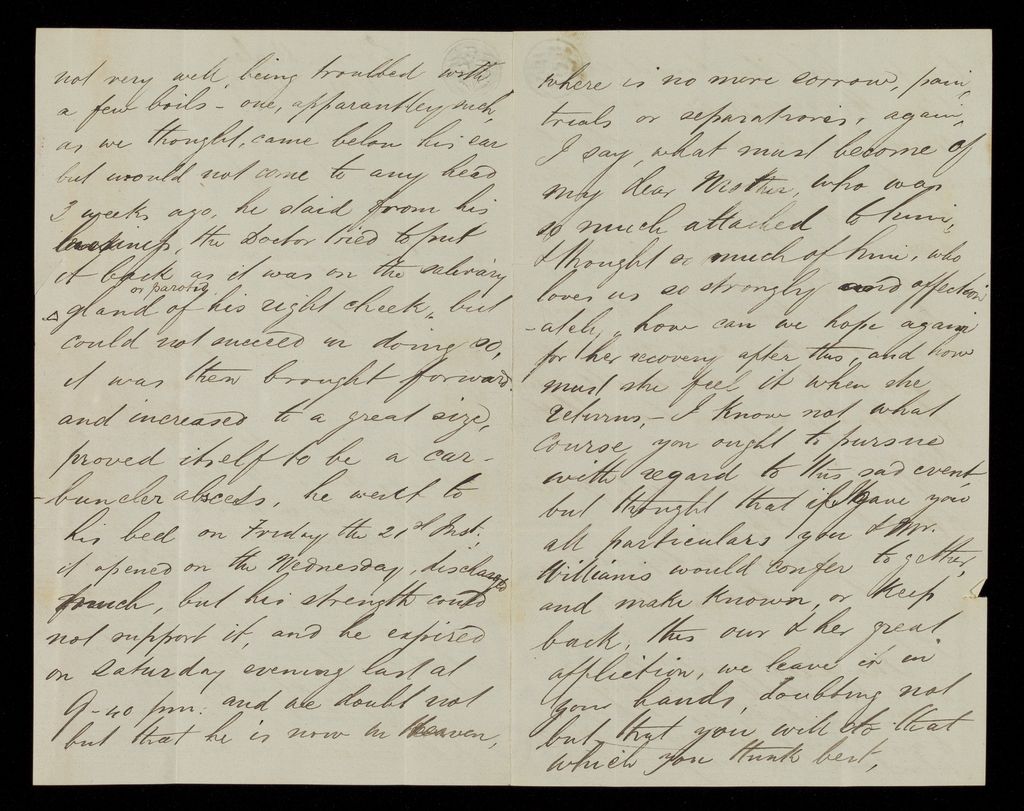 not very well, being troubled with
a few boils - one, apparantley such,
as we thought, came below his ear
but would not come to any head
3 weeks ago, he staid from his
business, the Doctor tried to put
it back as it was on the salivary
or parotid
gland of his right cheek, but
could not succeed in doing so,
it was then brought forward
and increased to a great size,
proved itself to be a car-
buncler abscess, he went to
his bed on Friday the 21st Inst.
it opened on the Wednesday, discharged
much, but his strength could
not support it, and he expired
on Saturday evening last at
9-40 pm: and we doubt not
but that he is now in Heaven,
where is no more sorrow, pain,
trials or separations, again,
I say, what must become of
my dear Mother, who was
so much attached to him,
& thought so much of him, who
loves us so strongly and affection
-ately, how can we hope again
for her recovery after this, and how
must she feel it when she
returns, - I know not what
course you ought to pursue
with regard to this sad event,
but thought that if I gave you
all particulars you & Mr.
Williams would confer to gether,
and make known, or keep
back, this our & her great
affliction, we leave it in
your hands, doubting not
but that you will do that
which you think best,